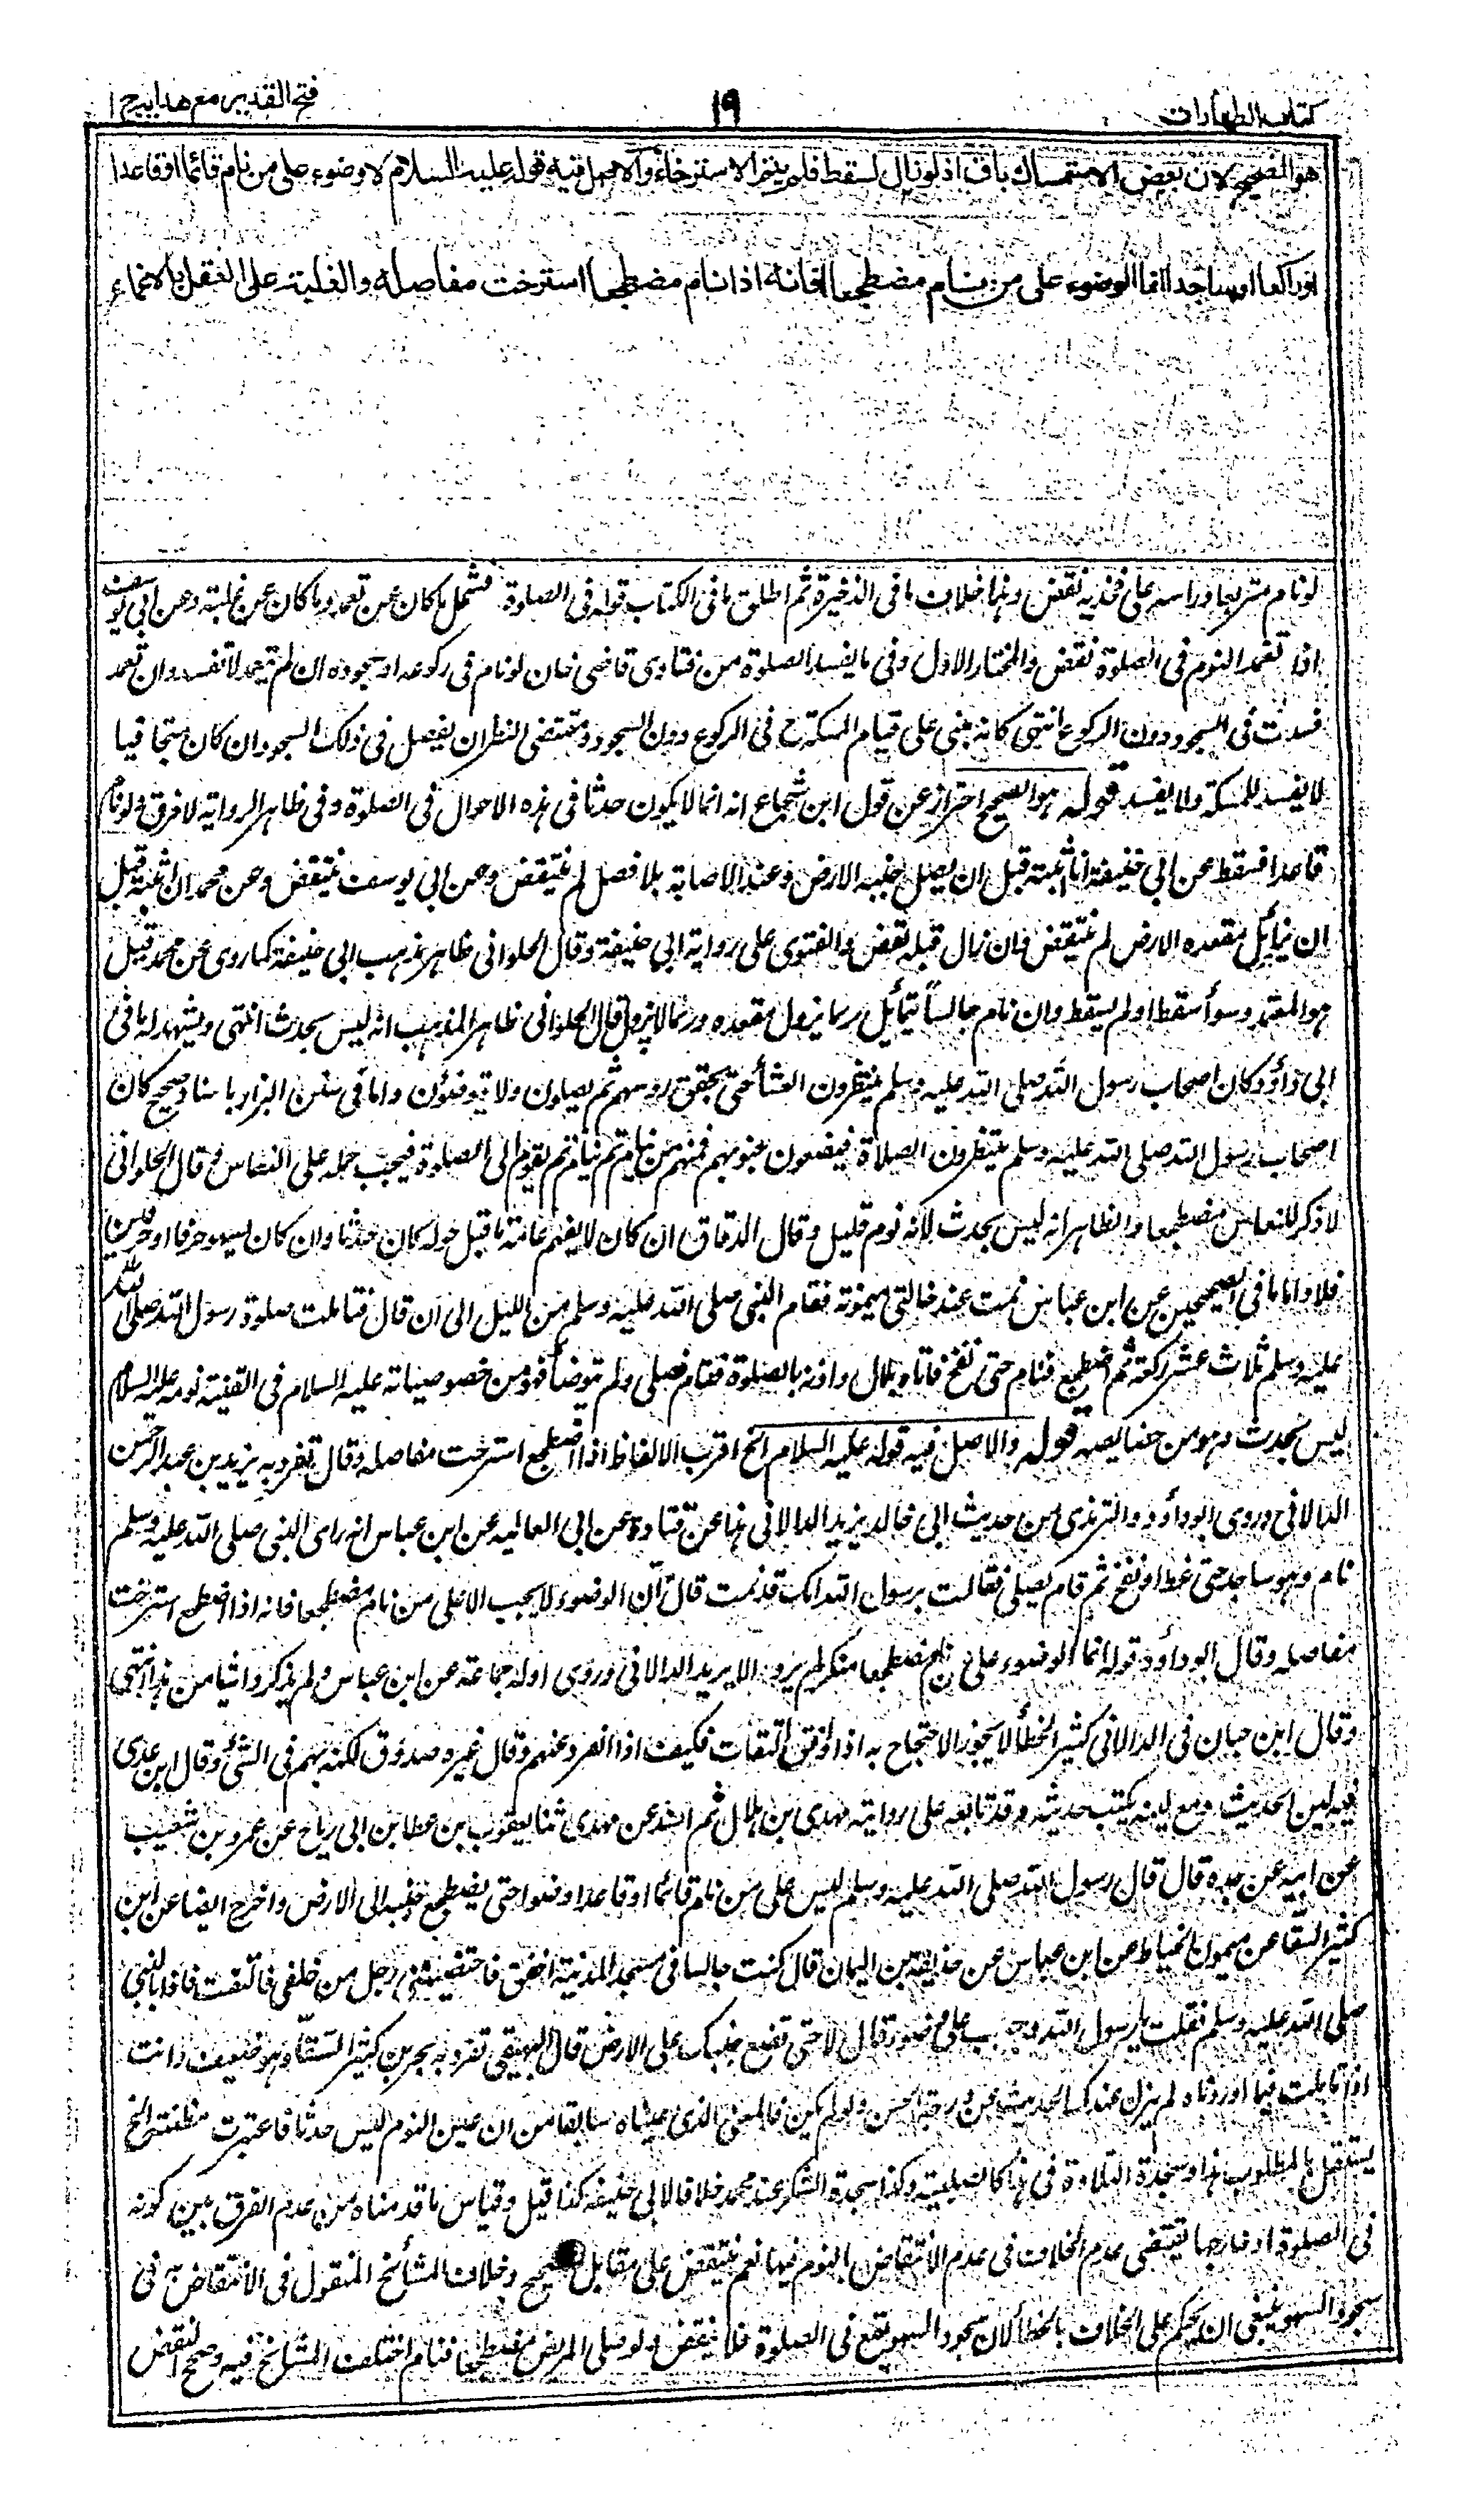 كتاب الطهارات
١٩
فتح القدير مع هدايه ج ا
هو الصحيح لان بعض الاستمساك باق اذ لو زال لسقط فلم يتم الاسترخاء والاصل فيه قوله عليه السلام لا وضوء على من نام قائما او قاعدا
او راكعا او ساجدا انما الوضوء على من نام مضطجعا فانه اذا نام مضطجعا استرخت مفاصله والغلبة على العقل بالاغماء
لو نام متربعا وراسه على فخذيه نقض وهذا خلاف ما في الذخيرة ثم اطلق ما في الكتاب قوله في الصلوة فشمل ما كان عن تعمد وما كان عن غلبة وعن ابي يوسف
اذا تعمد النوم في الصلوة نقض والمختار الاول وفي ما يفسد الصلوة من فتاوى قاضي خان لو نام في ركوعه او سجوده ان لم يتعمد لا تفسد وان تعمد
فسدت في السجود دون الركوع انتهى كانه مبني على قيام المسكة ح في الركوع دون السجود ومقتضى النظر ان يفصل في ذلك السجود ان كان متجافيا
لا يفسد للمسكة ولا يفسد قوله هو الصحيح احتراز عن قول ابن شجاع انه انما لا يكون حدثا في هذه الاحوال في الصلوة وفي ظاهر الرواية لا فرق ولو نام
قاعدا فسقط عن ابي حنيفة ان انتبه قبل ان يصل جنبه الارض وعند الاصابة بلا فصل لم ينتقض وعن ابي يوسف ينتقض وعن محمد ان انتبه قبل
ان يزايل مقعده الارض لم ينتقض وان زال قبله نقض والفتوى على رواية ابي حنيفة وقال الحلواني ظاهر مذهب ابي حنيفة كما روى عن محمد قيل
هو المعتمد وسواء سقط او لم يسقط وان نام جالساً يتمايل ربما يزول مقعده وربما لا يزول قال الحلواني ظاهر المذهب انه ليس بحدث انتهى ويشهد له ما في
ابي داؤد كان اصحاب رسول الله صلى الله عليه وسلم ينتظرون العشاء حتى تخفق رؤسهم ثم يصلون ولا يتوضئون واما في سنن البزار باسناد صحيح كان
اصحاب رسول الله صلى الله عليه وسلم ينتظرون الصلاة فيضعون جنوبهم فمنهم من ينام ثم يقوم الى الصلوة فيجب حمله على النعاس و قال الحلواني
لا ذكر للنعاس مضطجعا والظاهر انه ليس بحدث لانه نوم قليل وقال الدقاق ان كان لا يفهم عامة ما قيل حوله كان حدثا وان كان يسهو حرفا او حرفين
فلا واما ما في الصحيحين عن ابن عباس نمت عند خالتي ميمونة فقام النبي صلى الله عليه وسلم من الليل الى ان قال فتتامت صلوة رسول الله صلى الله
عليه وسلم ثلاث عشر ركعة ثم اضطجع فنام حتى نفخ فاتاه بلال واذنه بالصلوة فقام فصلى ولم يتوضأ فهو من خصوصياته عليه السلام في القنية نومه عليه السلام
ليس بحدث وهو من خصايصه قوله والاصل فيه قوله عليه السلام الخ اقرب الالفاظ اذا اضطجع استرخت مفاصله وقال تفرد به يزيد بن عبد الرحمن
الدالاني وروى ابو داؤد والترمذي من حديث ابي خالد يزيد الدالاني هذا عن قتادة عن ابي العالية عن ابن عباس انه رأى النبي صلى الله عليه وسلم
نام وهو ساجد حتى غط او نفخ ثم قام يصلي فقلت يرسول الله انك قد نمت قال ان الوضوء لا يجب الا على من نام مضطجعا فانه اذا اضطجع استرخت
مفاصله وقال ابو داؤد قوله انما الوضوء على من نام مضطجعا منكر لم يروه الا يزيد الدالاني وروى اوله جماعة عن ابن عباس ولم يذكروا شيا من هذا انتهى
وقال ابن حبان في الدالاني كثير الخطأ لا يجوز الاحتجاج به اذا وافق الثقات فكيف اذا انفرد عنهم وقال غيره صدوق لكنه يهم في الشئ وقال ابن عدي
فيه لين الحديث ومع لينه يكتب حديثه وقد تابعه على روايته مهدي ابن هلال ثم اسند عن مهدي ثنا يعقوب بن عطا بن ابي رباح عن عمرو بن شعيب
عن ابيه عن جده قال قال رسول الله صلى الله عليه وسلم ليس على من نام قائما او قاعدا وضوء حتى يضطجع جنبه الى الارض واخرج ايضا عن ابن
كثير السقا عن ميمون الخياط عن ابن عباس عن حذيفة بن اليمان قال كنت جالسا في مسجد المدينة اخفق فاحتضنني رجل من خلفي فالتفت فاذا بالنبي
صلى الله عليه وسلم فقلت يا رسول الله وجب علي وضوء قال لا حتى تضع جنبك على الارض قال البيهقي تفرد به بحر بن كثير السقا وهو ضعيف وانت
اذا تاملت فيما اوردناه لم ينزل عندك الحديث عن درجة الحسن ولو لم يكن فالمعنى الذي بيناه سابقا من ان عين النوم ليس حدثا فاعتبرت مظنته الخ
يستقل بالمطلوب هذا وسجدة التلاوة في هذا كالصلبية وكذا سجدة الشكر عند محمد خلافا لابي حنيفة كذا قيل وقياس ما قدمناه من عدم الفرق بين كونه
في الصلوة او خارجها يقتضي عدم الخلاف في عدم الانتقاض بالنوم فيها نعم ينتقض على مقابل الصحيح وخلاف المشائخ المنقول في الانتقاض به في
سجود السهو ينبغي ان يحكم على الخلاف بالخطأ لان سجود السهو يقع في الصلوة فلا ينقض ولو صلى المريض مضطجعا فنام اختلف المشائخ فيه وصحح النقض